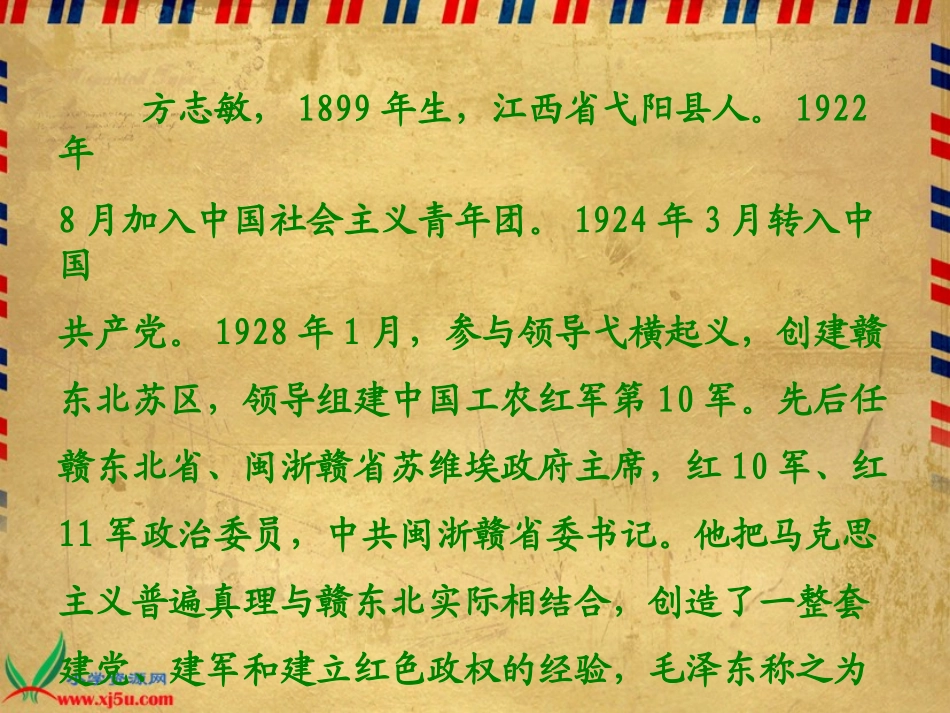 方志敏， 1899 年生，江西省弋阳县人。 1922
年
8 月加入中国社会主义青年团。 1924 年 3 月转入中
国
共产党。 1928 年 1 月，参与领导弋横起义，创建赣
东北苏区，领导组建中国工农红军第 10 军。先后任
赣东北省、闽浙赣省苏维埃政府主席，红 10 军、红
11 军政治委员，中共闽浙赣省委书记。他把马克思
主义普遍真理与赣东北实际相结合，创造了一整套
建党、建军和建立红色政权的经验，毛泽东称之为
www.xj5u.com